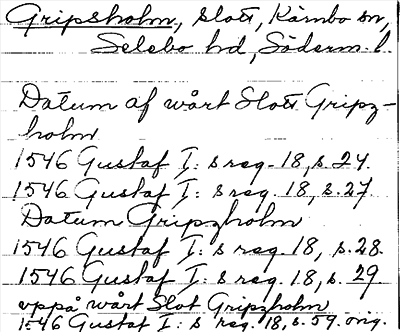 Gripsholm, slott, Kärnbo sn,
Selebo hd, Söderm. l.
Datum af wårt Slott Gripz-
holm
1546 Gustaf I: s reg. 18, s. 24.
1546 Gustaf I: s reg. 18, s. 27.
Datum Gripzholm
1546 Gustaf I: s reg. 18, s. 28.
1546 Gustaf I: s reg. 18, s. 29
vppå wårt Slot Gripzholm
1546 Gustaf I: s reg. 18, s. 59. orig.